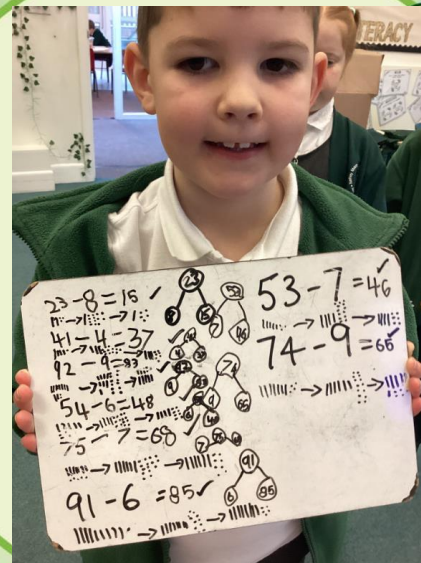 LITERACY
23-8=15 ✓
41-4=37
92-9=83
54-6=48
75-7=68
91-6=85 ✓
53-7=46 ✓
74-9=65 ✓
23
8 15
53
7 46
74
9 65
91
6 85